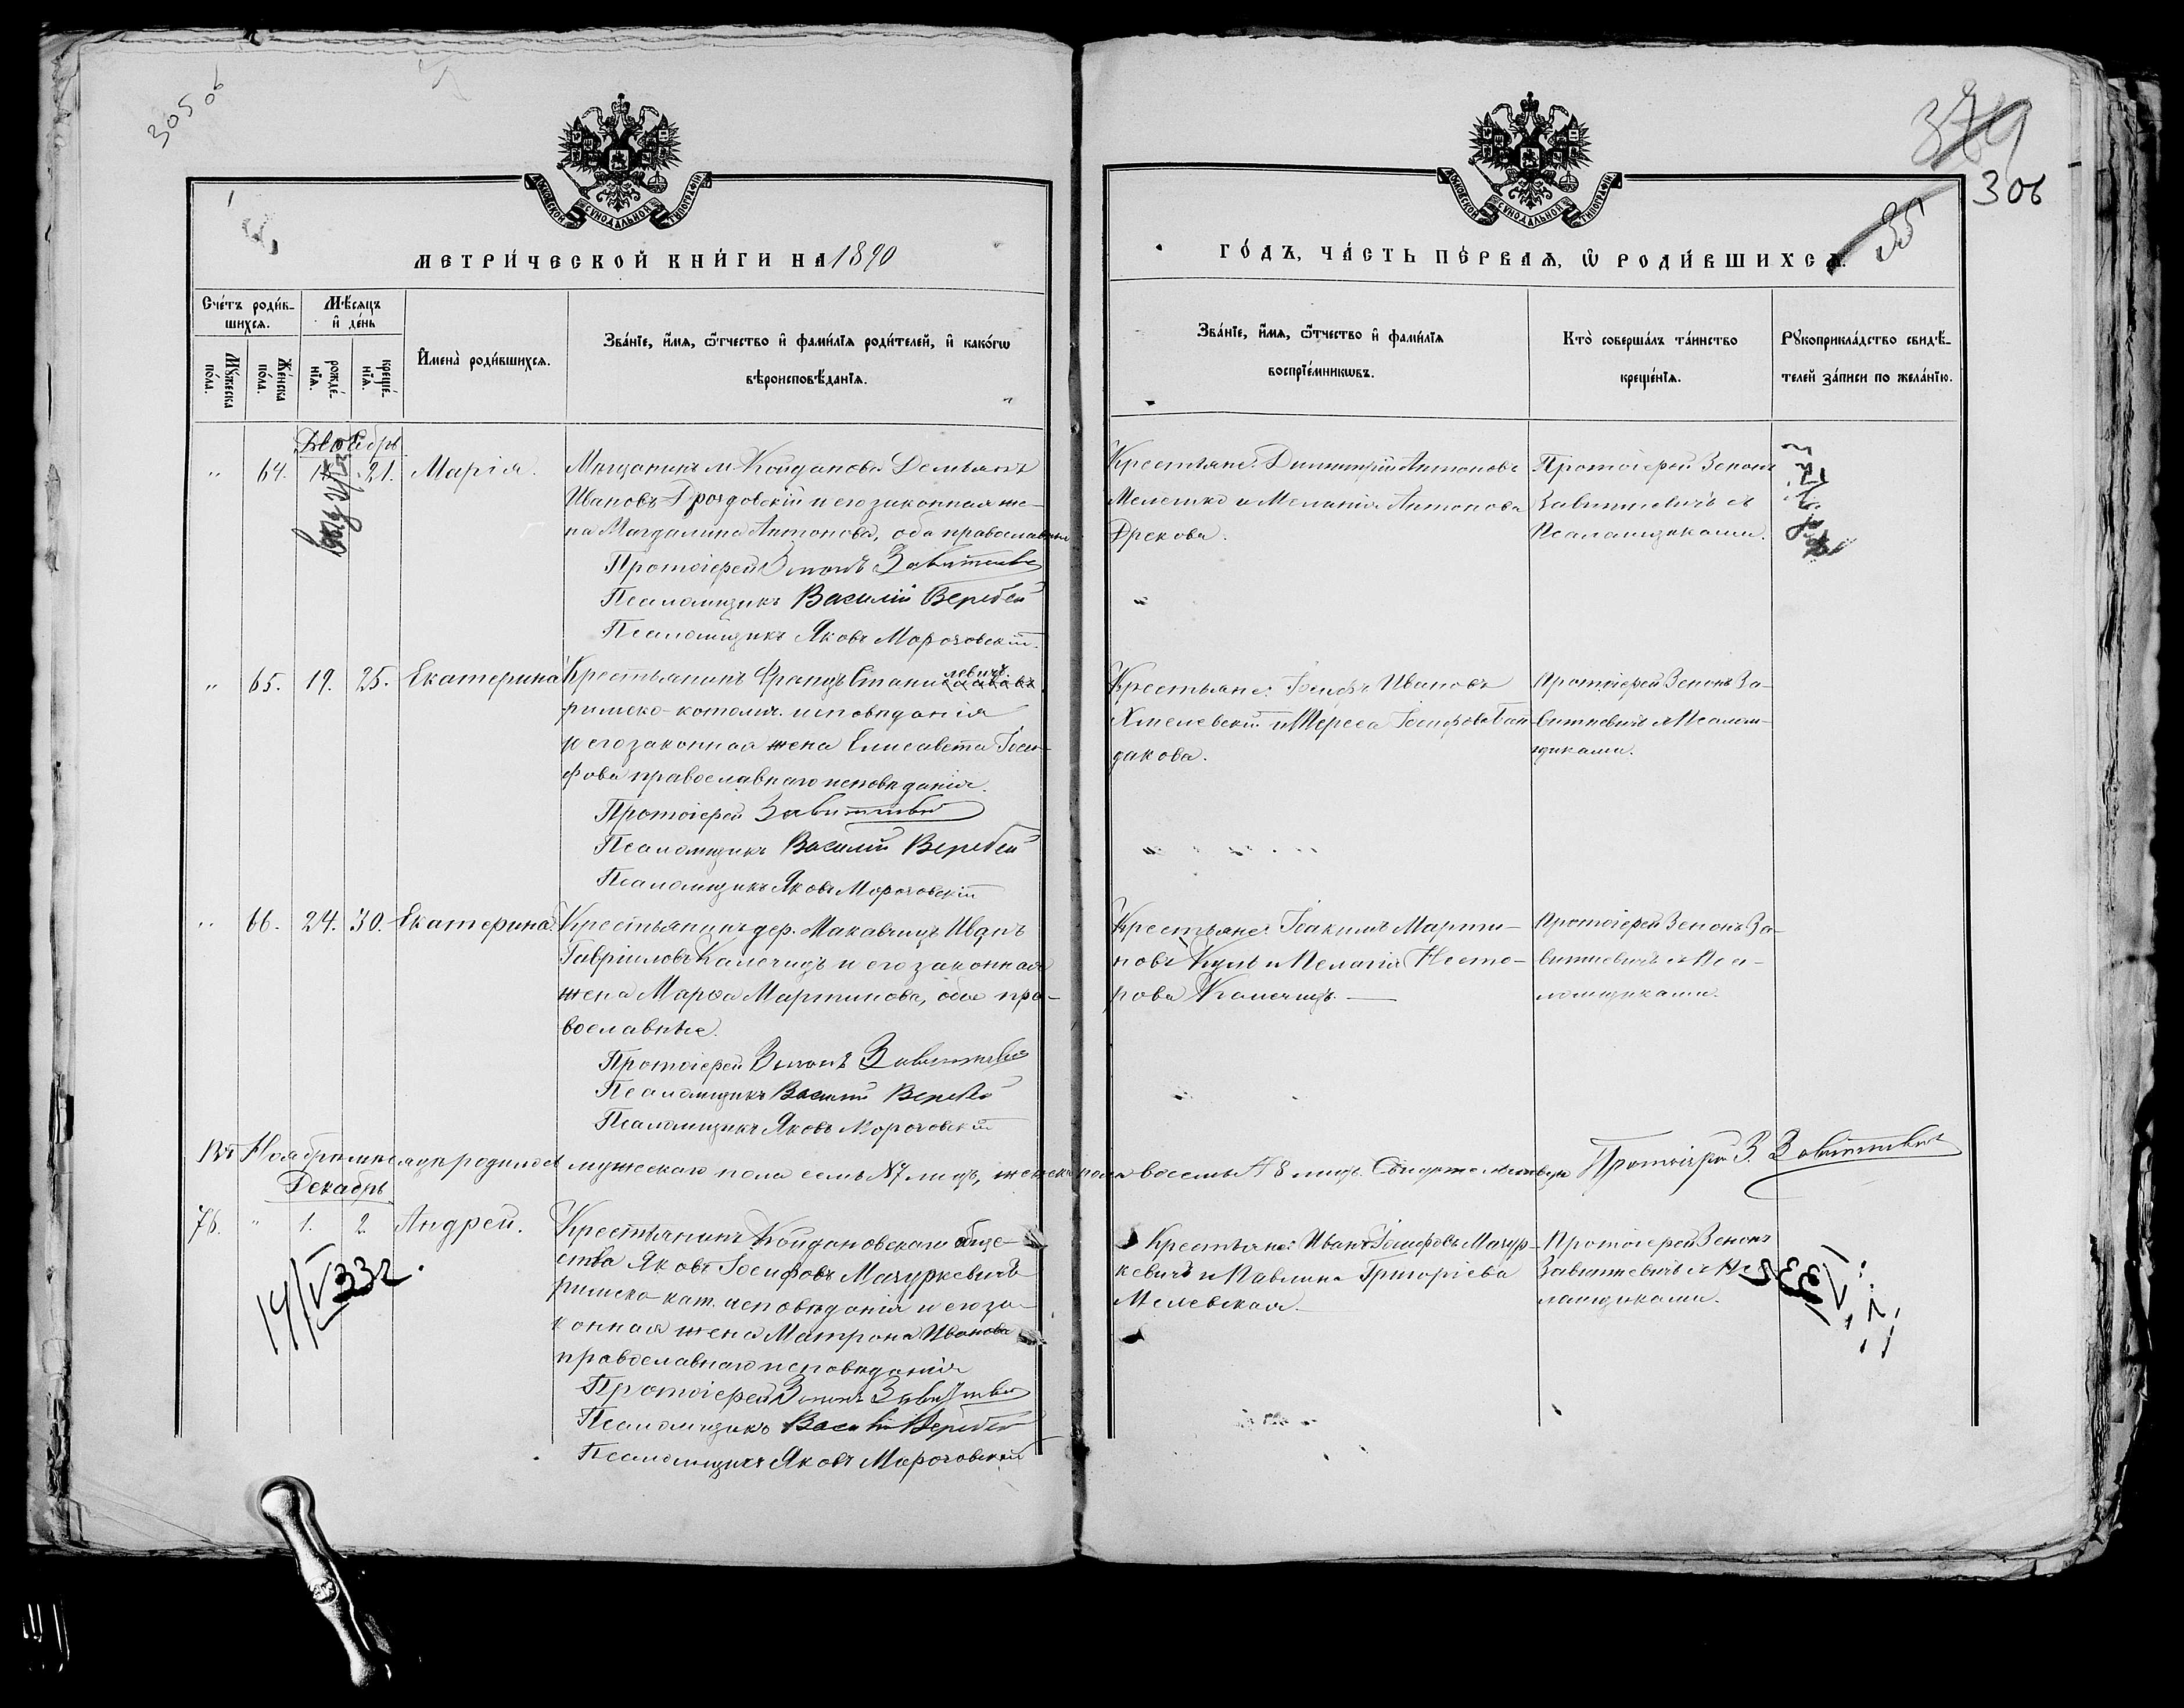 305 об
379
306
35
МОСКОВСКОЙ СУНОДАЛЬНОЙ ТИПОГРАФІИ
МЕТРИ́ЧЕСКОЙ КНИ́ГИ НА 1890
МОСКОВСКОЙ СУНОДАЛЬНОЙ ТИПОГРАФІИ
ГО́ДЪ, ЧА́СТЬ ПЕ́РВАѦ, Ѡ РОДИ́ВШИХСѦ.
Сче́тъ роди́в-
шихсѧ.
Мѣ́сѧцъ
и҆ де́нь
Мꙋ́жеска
по́ла.
Же́нска
по́ла.
рожде́-
нїѧ.
креще́-
нїѧ.
И҆мена̀ роди́вшихсѧ.
Зва́нїе, и҆́мѧ, ѻ҆́тчество и҆ фами́лїѧ роди́телей, и҆ како́гѡ
вѣроисповѣ́данїѧ.
Зва́нїе, и҆́мѧ, ѻ҆́тчество и҆ фами́лїѧ
воспрїе́мникѡвъ.
Кто̀ соверша́лъ та́инство
креще́нїѧ.
Рꙋкоприкла́дство свидѣ́-
телей за́писи по жела́нїю.
Ноябрь
" 64. 18. 21. Марія.
Мѣщанинъ м. Койданова Демьянъ
Ивановъ Гроздовскій и его законная же-
на Магдалина Антонова, оба православные
Протоіерей Зенонъ Завитневичъ
Псаломщикъ Василій Веребей
Псаломщикъ Яковъ Морозовскій.
Крестьяне: Димитрій Антоновъ
Мелешко и Меланія Антонова
Дрекова.
Протоіерей Зенонъ
Завитневичъ съ
Псаломщиками.
" 65. 19. 25. Екатерина
Крестьянинъ Францъ Стани
римско-католич. исповѣданія
и его законная жена Елисавета Іоси-
фова православнаго исповѣданія.
Протоіерей Завитневичъ
Псаломщикъ Василій Веребей
Псаломщикъ Яковъ Морозовскій
Крестьяне: Іосифъ Ивановъ
Хмелевскій и Тереса Іосифова Бай-
дакова.
Протоіерей Зенонъ За-
витневичъ съ Псалом-
щиками.
" 66. 24. 30. Екатерина.
Крестьянинъ дер. Макавчицъ Иванъ
Гавріиловъ Калечицъ и его законная
жена Марѳа Мартинова, оба пра-
вославные.
Протоіерей Зенонъ Завитневичъ
Псаломщикъ Василій Веребей
Псаломщикъ Яковъ Морозовскій
Крестьяне: Іоакимъ Марти-
новъ Куль и Пелагія Несто-
рова Калечицъ.
Протоіерей Зенонъ За-
витневичъ съ Пса-
ломщиками.
Въ Ноябрѣ мѣсяцѣ родилось мужескаго пола семь №7 лицъ, женска пола восемь №8 лицъ. Свидѣтельствую Протоіерей З. Завитневичъ
Декабрь
76. " 1. 2. Андрей.
14/V 33г.
Крестьянинъ Койдановскаго обще-
ства Яковъ Іосифовъ Мазуркевичъ
римско-кат. исповѣданія и его за-
конная жена Матрона Иванова
православнаго исповѣданія
Протоіерей Зенонъ Завитневичъ
Псаломщикъ Василій Веребей
Псаломщикъ Яковъ Морозовскій
Крестьяне: Иванъ Іосифовъ Мазур-
кевичъ и Павлина Григоріева
Мелевская.
Протоіерей Зенонъ
Завитневичъ съ Пса-
ломщиками.